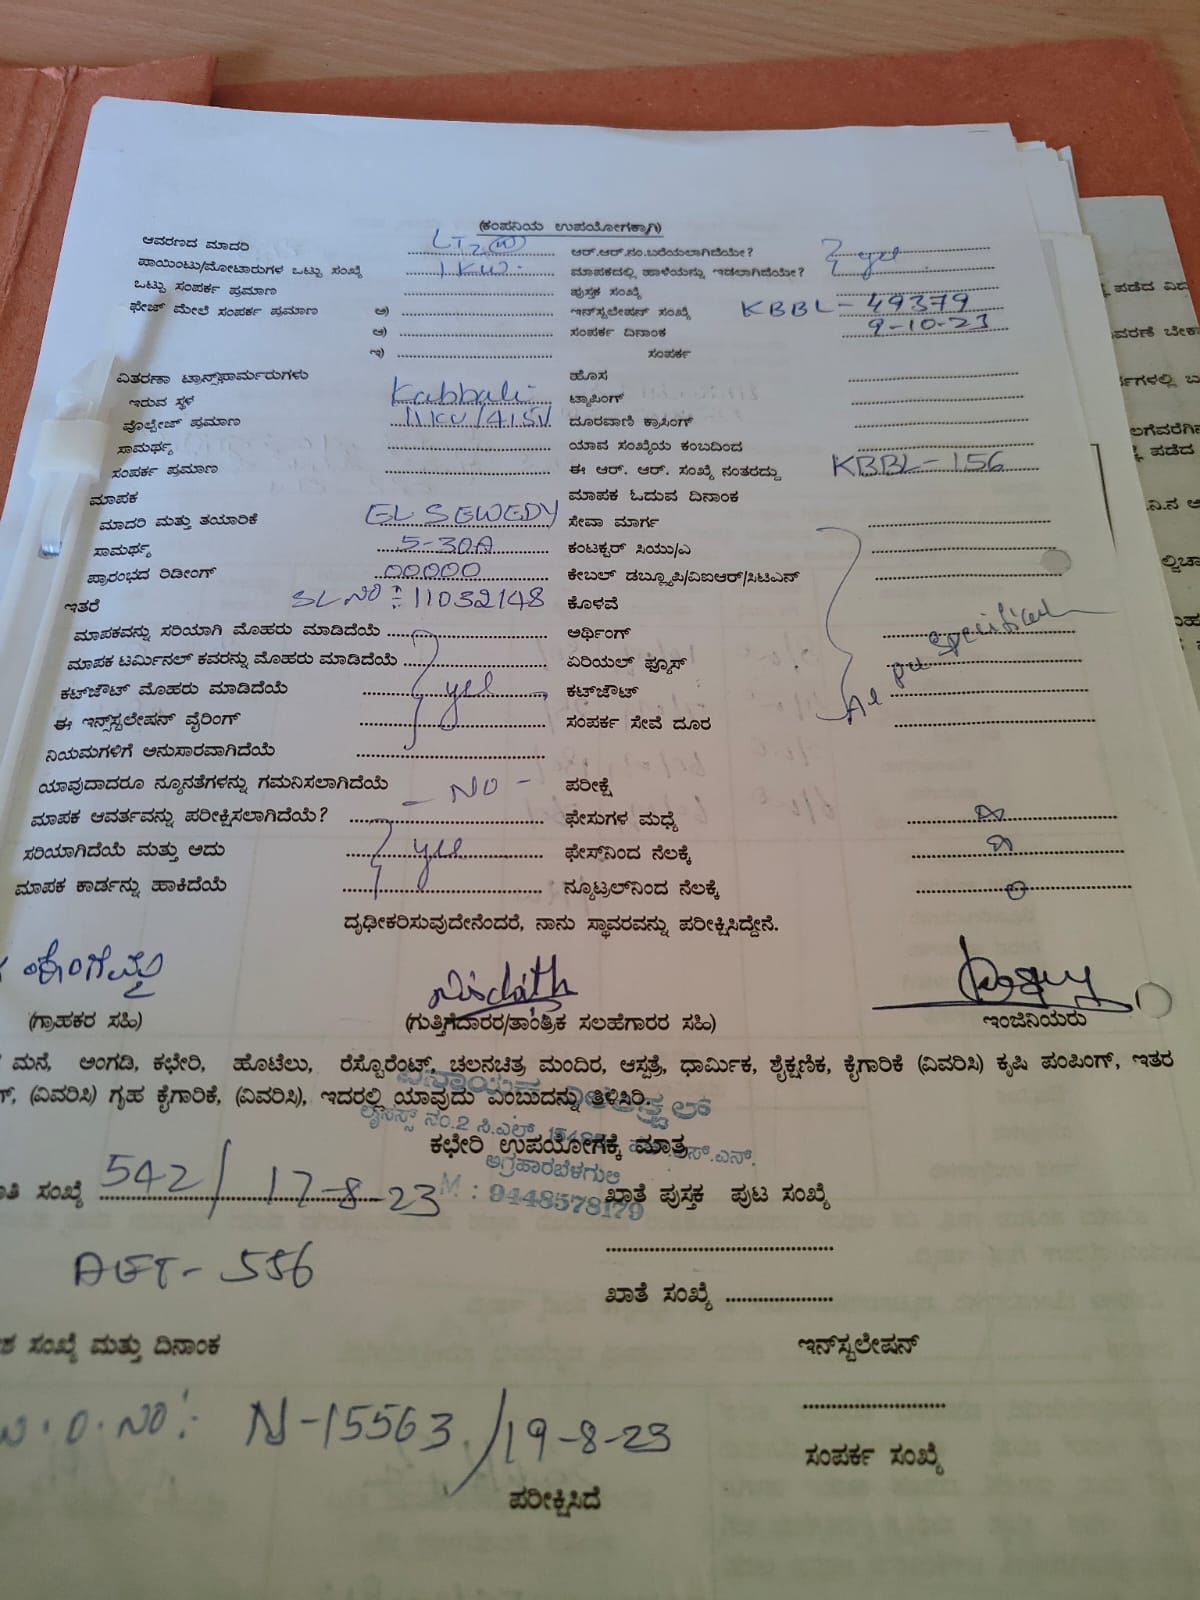 (ಕಂಪನಿಯ ಉಪಯೋಗಕ್ಕಾಗಿ)
ಆವರಣದ ಮಾದರಿ LT2 ಆರ್.ಆರ್.ನಂ.ಬರೆಯಲಾಗಿದೆಯೇ? yes
ಪಾಯಿಂಟು/ಮೋಟಾರುಗಳ ಒಟ್ಟು ಸಂಖ್ಯೆ 1KW. ಮಾಪಕದಲ್ಲಿ ಹಾಳೆಯನ್ನು ಇಡಲಾಗಿದೆಯೇ?
ಒಟ್ಟು ಸಂಪರ್ಕ ಪ್ರಮಾಣ ಪುಸ್ತಕ ಸಂಖ್ಯೆ
ಫೇಜ್ ಮೇಲೆ ಸಂಪರ್ಕ ಪ್ರಮಾಣ ಅ) ಇನ್‌ಸ್ಟಲೇಷನ್ ಸಂಖ್ಯೆ KBBL-49379
ಆ) ಸಂಪರ್ಕ ದಿನಾಂಕ 9-10-23
ಇ) ಸಂಪರ್ಕ
ವಿತರಣಾ ಟ್ರಾನ್ಸ್‌ಫಾರ್ಮರುಗಳು ಹೊಸ
ಇರುವ ಸ್ಥಳ Kabbali ಟ್ಯಾಪಿಂಗ್
ವೋಲ್ಟೇಜ್ ಪ್ರಮಾಣ 11KV/415V ದೂರವಾಣಿ ಕ್ರಾಸಿಂಗ್
ಸಾಮರ್ಥ್ಯ ಯಾವ ಸಂಖ್ಯೆಯ ಕಂಬದಿಂದ
ಸಂಪರ್ಕ ಪ್ರಮಾಣ ಈ ಆರ್. ಆರ್. ಸಂಖ್ಯೆ ನಂತರದ್ದು KBBL-156
ಮಾಪಕ ಮಾಪಕ ಓದುವ ದಿನಾಂಕ
ಮಾದರಿ ಮತ್ತು ತಯಾರಿಕೆ EL SEWEDY ಸೇವಾ ಮಾರ್ಗ
ಸಾಮರ್ಥ್ಯ 5-30A ಕಂಟಕ್ಟರ್ ಸಿಯು/ಎ
ಪ್ರಾರಂಭದ ರಿಡೀಂಗ್ 00000 ಕೇಬಲ್ ಡಬ್ಲ್ಯೂಪಿ/ವಿಐಆರ್/ಸಿಟಿಎನ್
ಇತರೆ SL NO:- 11032148 ಕೊಳವೆ
ಮಾಪಕವನ್ನು ಸರಿಯಾಗಿ ಮೊಹರು ಮಾಡಿದೆಯೆ ಅರ್ಥಿಂಗ್
ಮಾಪಕ ಟರ್ಮಿನಲ್ ಕವರನ್ನು ಮೊಹರು ಮಾಡಿದೆಯೆ ಏರಿಯಲ್ ಫ್ಯೂಸ್
ಕಟ್‌ಔಟ್ ಮೊಹರು ಮಾಡಿದೆಯೆ yes ಕಟ್‌ಔಟ್
ಈ ಇನ್‌ಸ್ಟಲೇಷನ್ ವೈರಿಂಗ್ ಸಂಪರ್ಕ ಸೇವೆ ದೂರ
ನಿಯಮಗಳಿಗೆ ಅನುಸಾರವಾಗಿದೆಯೆ
ಯಾವುದಾದರೂ ನ್ಯೂನತೆಗಳನ್ನು ಗಮನಿಸಲಾಗಿದೆಯೆ - NO - ಪರೀಕ್ಷೆ
ಮಾಪಕ ಆವರ್ತವನ್ನು ಪರೀಕ್ಷಿಸಲಾಗಿದೆಯೆ? ಫೇಸುಗಳ ಮಧ್ಯೆ
ಸರಿಯಾಗಿದೆಯೆ ಮತ್ತು ಅದು yes ಫೇಸ್‌ನಿಂದ ನೆಲಕ್ಕೆ
ಮಾಪಕ ಕಾರ್ಡನ್ನು ಹಾಕಿದೆಯೆ ನ್ಯೂಟ್ರಲ್‌ನಿಂದ ನೆಲಕ್ಕೆ
ದೃಢೀಕರಿಸುವುದೇನೆಂದರೆ, ನಾನು ಸ್ಥಾವರವನ್ನು ಪರೀಕ್ಷಿಸಿದ್ದೇನೆ.
(ಗ್ರಾಹಕರ ಸಹಿ) (ಗುತ್ತಿಗೆದಾರರ/ತಾಂತ್ರಿಕ ಸಲಹೆಗಾರರ ಸಹಿ) ಇಂಜಿನಿಯರು
ಮನೆ, ಅಂಗಡಿ, ಕಛೇರಿ, ಹೊಟೆಲು, ರೆಸ್ಟೊರೆಂಟ್, ಚಲನಚಿತ್ರ ಮಂದಿರ, ಆಸ್ಪತ್ರೆ, ಧಾರ್ಮಿಕ, ಶೈಕ್ಷಣಿಕ, ಕೈಗಾರಿಕೆ (ವಿವರಿಸಿ) ಕೃಷಿ ಪಂಪಿಂಗ್, ಇತರ
(ವಿವರಿಸಿ) ಗೃಹ ಕೈಗಾರಿಕೆ, (ವಿವರಿಸಿ), ಇದರಲ್ಲಿ ಯಾವುದು ಎಂಬುದನ್ನು ತಿಳಿಸಿರಿ.
ಕಛೇರಿ ಉಪಯೋಗಕ್ಕೆ ಮಾತ್ರ
ಅಗ್ರಹಾರಬೆಳಗುಲಿ
M : 9448578179
ಸಂಖ್ಯೆ 542/17-8-23 ಖಾತೆ ಪುಸ್ತಕ ಪುಟ ಸಂಖ್ಯೆ
AET- 556
ಖಾತೆ ಸಂಖ್ಯೆ
ಸಂಖ್ಯೆ ಮತ್ತು ದಿನಾಂಕ ಇನ್‌ಸ್ಟಲೇಷನ್
O. NO:- N-15563/19-8-23
ಸಂಪರ್ಕ ಸಂಖ್ಯೆ
ಪರೀಕ್ಷಿಸಿದೆ